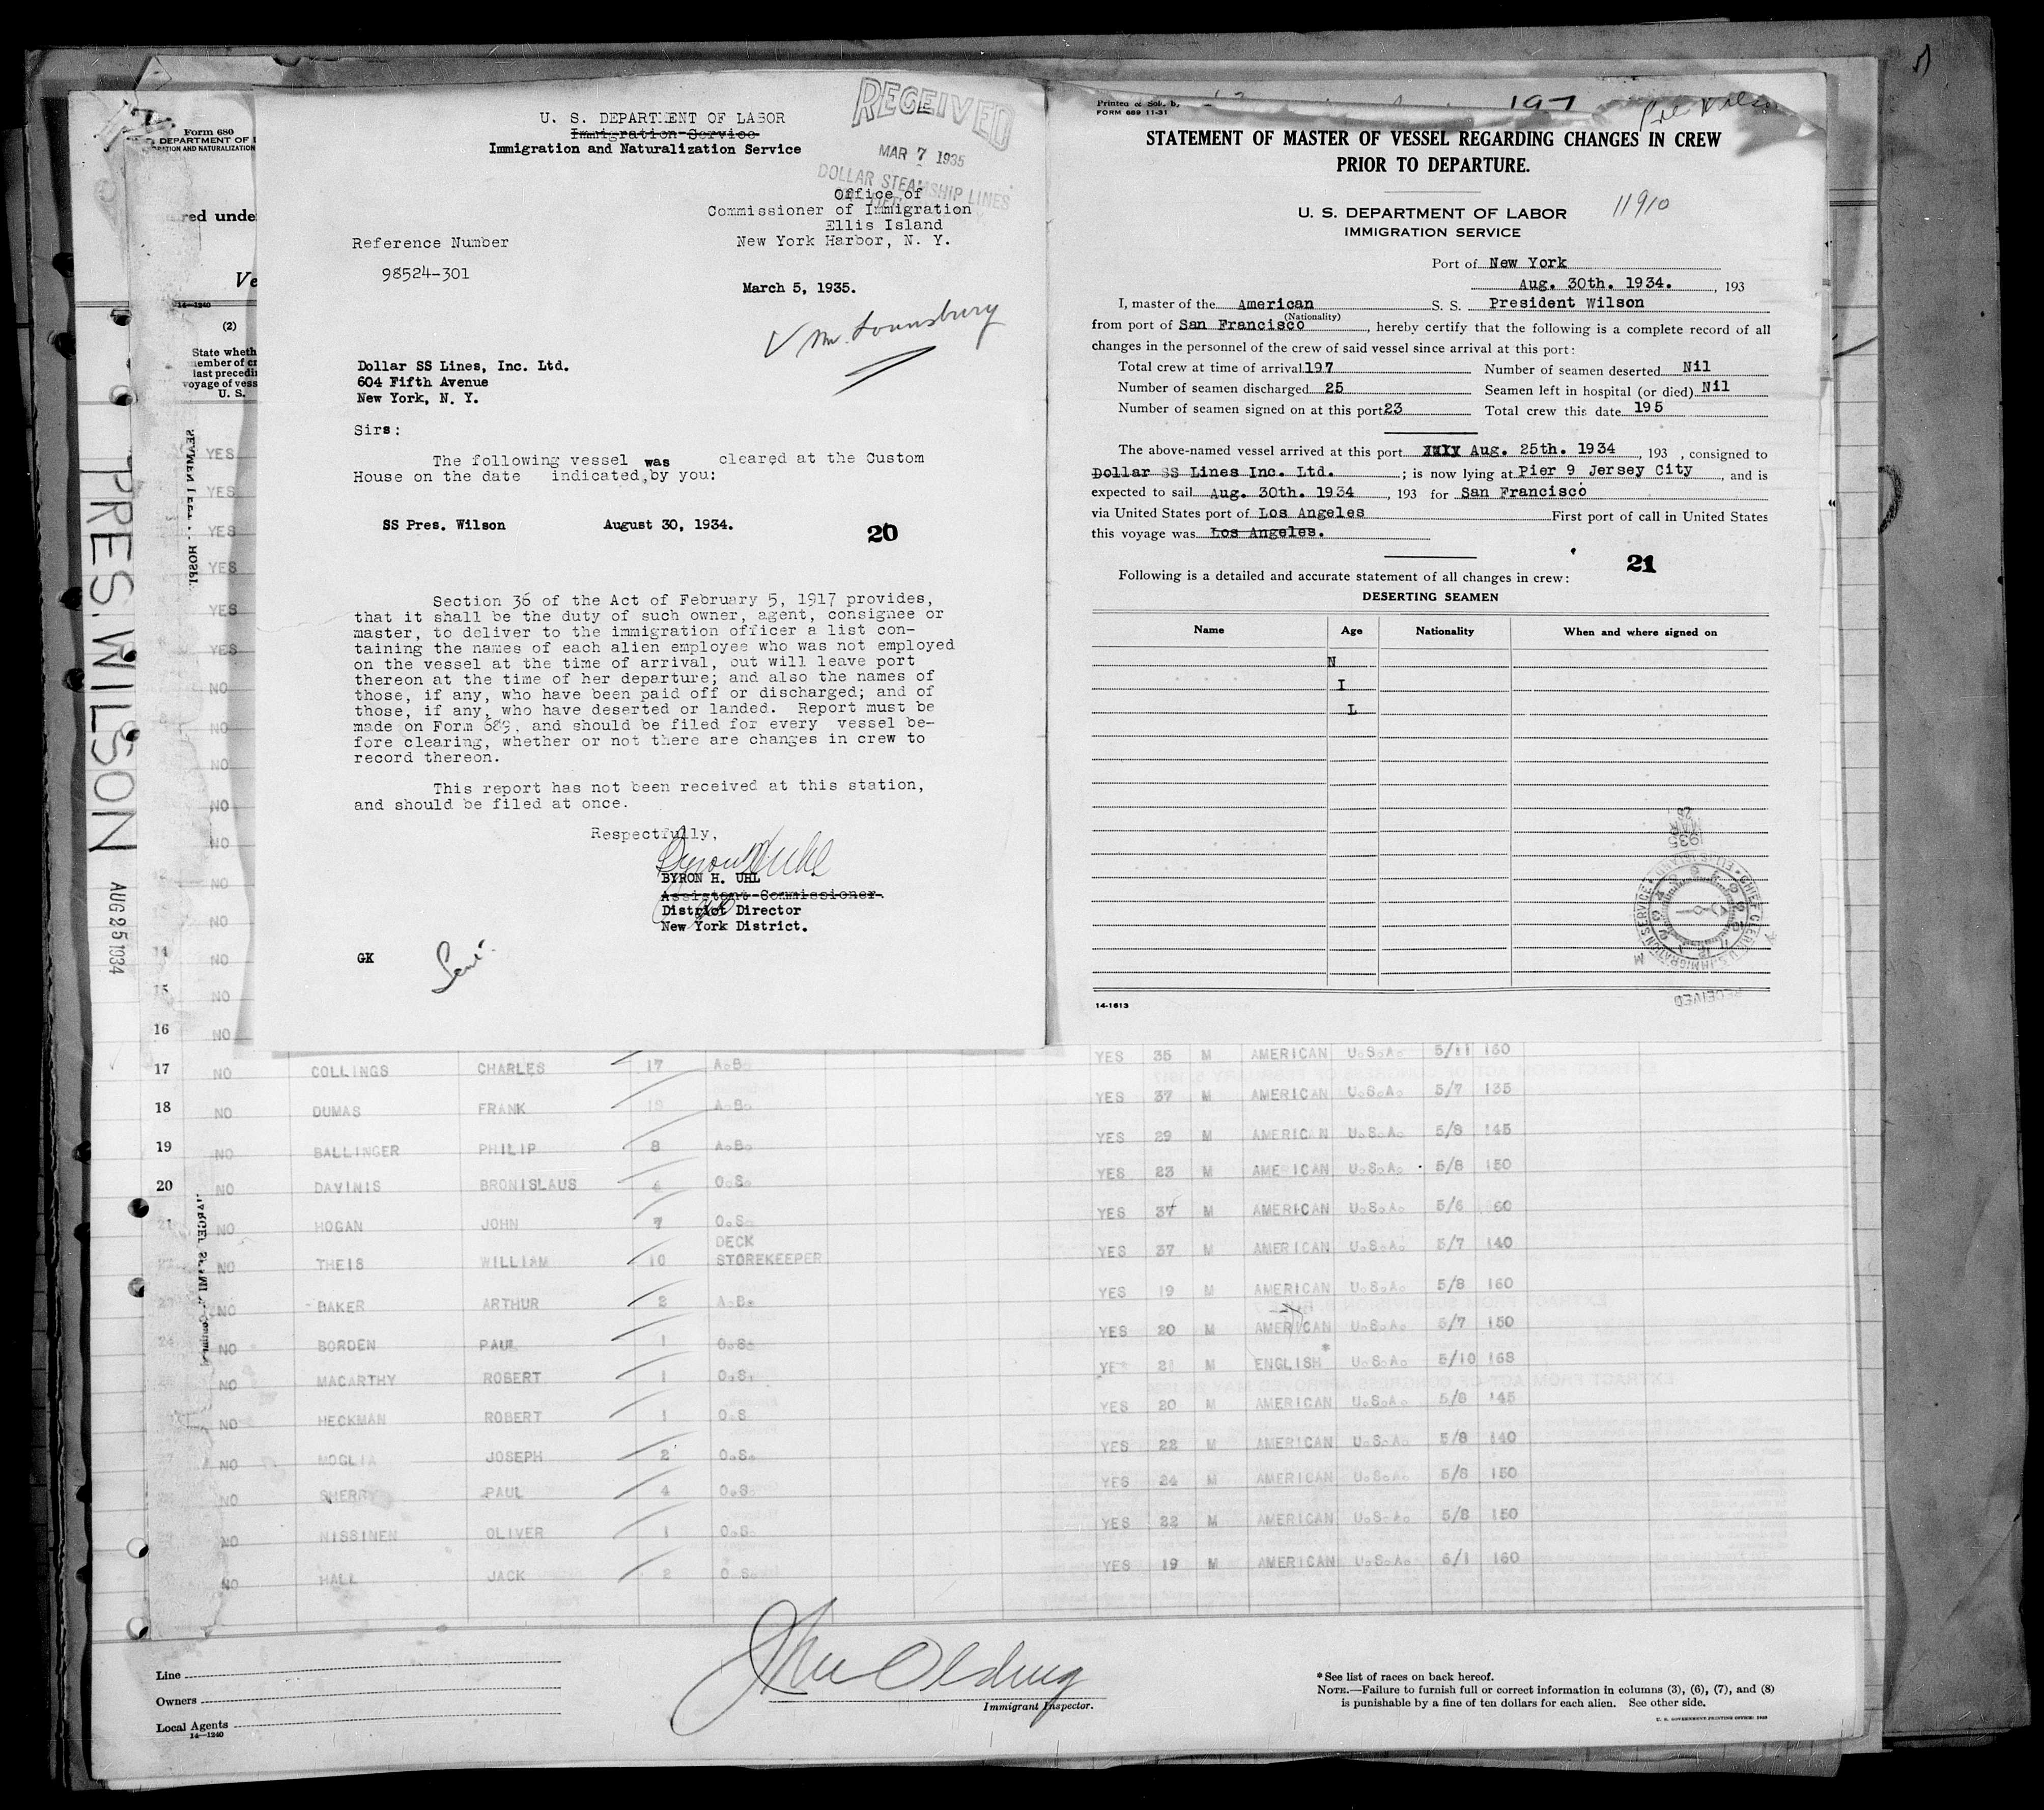 Form 680
DEPARTMENT OF
RATION AND NATURALIZATION
red unde
Ve
14—1240
(2)
State wheth
member of cr
last precedi
voyage of vess
U. S.
PRES. WILSON
AUG 25 1934
U. S. DEPARTMENT OF LABOR
Immigration Service
Immigration and Naturalization Service
RECEIVED
MAR 7 1935
DOLLAR STEAMSHIP LINES
Office of
Commissioner of Immigration
Ellis Island
New York Harbor, N. Y.
Reference Number
98524-301
March 5, 1935.
Mr. Lounsbury
Dollar SS Lines, Inc. Ltd.
604 Fifth Avenue
New York, N. Y.
Sirs:
The following vessel was cleared at the Custom
House on the date indicated, by you:
SS Pres. Wilson August 30, 1934.
20
Section 36 of the Act of February 5, 1917 provides,
that it shall be the duty of such owner, agent, consignee or
master, to deliver to the immigration officer a list con-
taining the names of each alien employee who was not employed
on the vessel at the time of arrival, but will leave port
thereon at the time of her departure; and also the names of
those, if any, who have been paid off or discharged; and of
those, if any, who have deserted or landed. Report must be
made on Form 689, and should be filed for every vessel be-
fore clearing, whether or not there are changes in crew to
record thereon.
This report has not been received at this station,
and should be filed at once.
Respectfully,
Byron H. Uhl
BYRON H. UHL
Assistant Commissioner
District Director
New York District.
GK
Printed & Sol. b,
FORM 689 11-31
197
STATEMENT OF MASTER OF VESSEL REGARDING CHANGES IN CREW
PRIOR TO DEPARTURE.
U. S. DEPARTMENT OF LABOR
11910
IMMIGRATION SERVICE
Port of New York
Aug. 30th. 1934. , 193
I, master of the American S. S. President Wilson
(Nationality)
from port of San Francisco , hereby certify that the following is a complete record of all
changes in the personnel of the crew of said vessel since arrival at this port:
Total crew at time of arrival 197 Number of seamen deserted Nil
Number of seamen discharged 25 Seamen left in hospital (or died) Nil
Number of seamen signed on at this port 23 Total crew this date 195
The above-named vessel arrived at this port Aug. 25th. 1934 , 193 , consigned to
Dollar SS Lines Inc. Ltd. ; is now lying at Pier 9 Jersey City , and is
expected to sail Aug. 30th. 1934 , 193 for San Francisco
via United States port of Los Angeles First port of call in United States
this voyage was Los Angeles.
21
Following is a detailed and accurate statement of all changes in crew:
DESERTING SEAMEN
Name Age Nationality When and where signed on
N
I
L
1935
MAR
26
CHIEF CLERK U.S. IMMIGRATION SERVICE
RECEIVED
14-1613
YES
YES
YES
YES
YES
YES
NO
NO
NO
NO
NO
NO
NO
14 NO
15 NO
16 NO
17 NO COLLINGS CHARLES 17 A.B. YES 35 M AMERICAN U.S.A. 5/11 160
18 NO DUMAS FRANK 19 A.B. YES 37 M AMERICAN U.S.A. 5/7 135
19 NO BALLINGER PHILIP 8 A.B. YES 29 M AMERICAN U.S.A. 5/8 145
20 NO DAVINIS BRONISLAUS 4 O.S. YES 23 M AMERICAN U.S.A. 5/8 150
21 NO HOGAN JOHN 7 O.S. YES 37 M AMERICAN U.S.A. 5/6 60
22 NO THEIS WILLIAM 10 DECK STOREKEEPER YES 37 M AMERICAN U.S.A. 5/7 140
23 NO BAKER ARTHUR 2 A.B. YES 19 M AMERICAN U.S.A. 5/8 160
24 NO BORDEN PAUL 1 O.S. YES 20 M AMERICAN U.S.A. 5/7 150
NO MACARTHY ROBERT 1 O.S. YES 21 M ENGLISH* U.S.A. 5/10 168
NO HECKMAN ROBERT 1 O.S YES 20 M AMERICAN U.S.A. 5/8 145
27 NO MOGLIA JOSEPH 2 O.S. YES 22 M AMERICAN U.S.A. 5/8 140
NO SHERRY PAUL 4 O.S. YES 24 M AMERICAN U.S.A. 5/8 150
NO NISSINEN OLIVER 1 O.S. YES 22 M AMERICAN U.S.A. 5/8 150
NO HALL JACK 2 O.S. YES 19 M AMERICAN U.S.A. 6/1 160
Line
Owners
Local Agents
14—1240
Immigrant Inspector.
*See list of races on back hereof.
NOTE.—Failure to furnish full or correct information in columns (3), (6), (7), and (8)
is punishable by a fine of ten dollars for each alien. See other side.
U. S. GOVERNMENT PRINTING OFFICE: